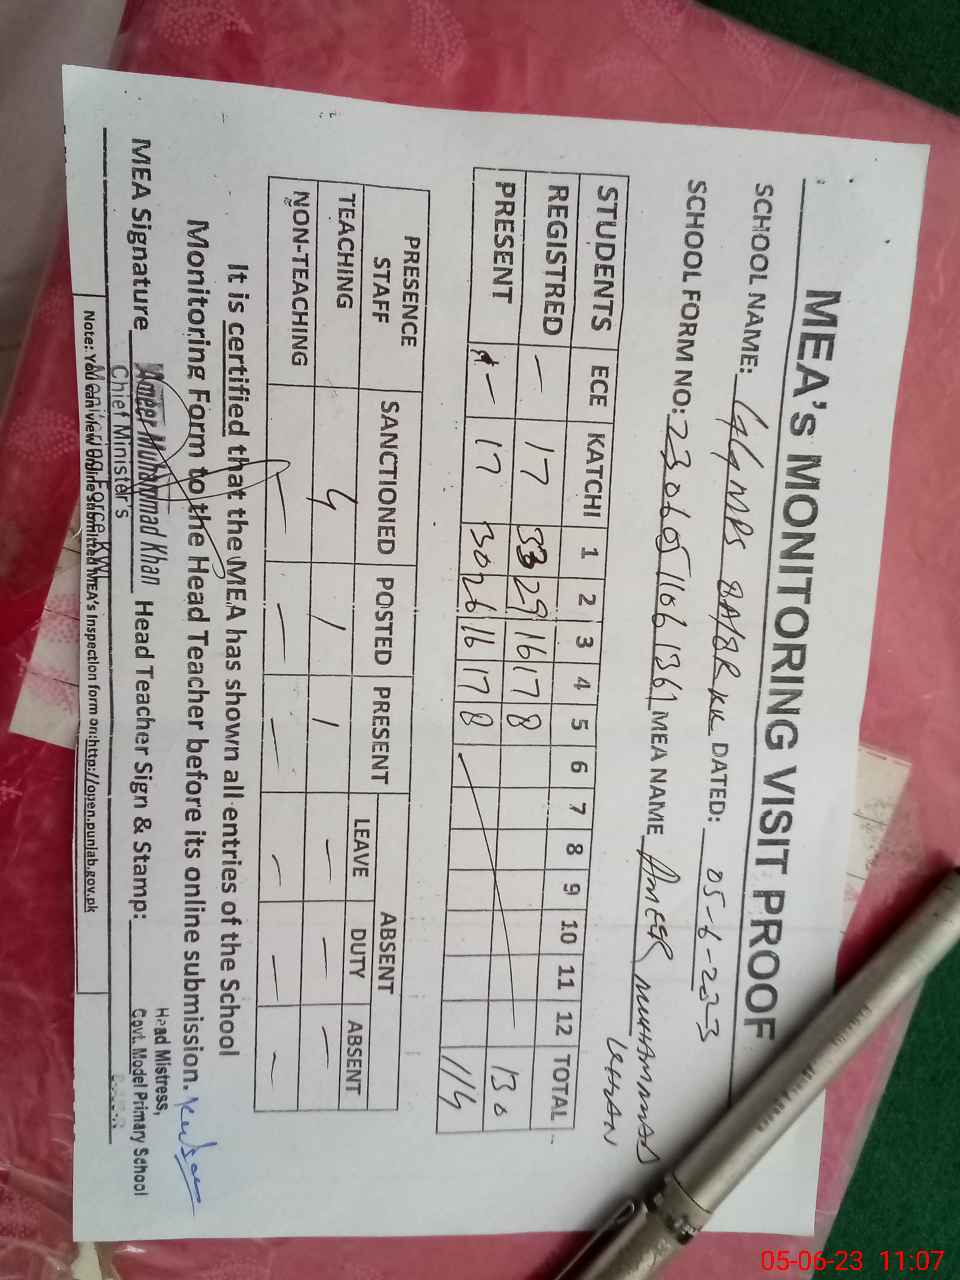 MEA's MONITORING VISIT PROOF
SCHOOL NAME: GGMPS 8A/8R KK DATED: 05-6-2023
SCHOOL FORM NO: 23060511061361 MEA NAME AMEER MUHAMMAD KHAN
STUDENTS ECE KATCHI 1 2 3 4 5 6 7 8 9 10 11 12 TOTAL
REGISTRED — 17 33 29 16 17 8 130
PRESENT — 17 30 26 16 17 8 114
PRESENCE STAFF SANCTIONED POSTED PRESENT ABSENT
LEAVE DUTY ABSENT
TEACHING 4 1 1 — — —
NON-TEACHING — — — — — —
It is certified that the MEA has shown all entries of the School
Monitoring Form to the Head Teacher before its online submission.
MEA Signature Ameer Muhammad Khan Head Teacher Sign & Stamp:
Chief Minister's
Monitoring Force KWL
Head Mistress,
Govt. Model Primary School
Note: You can view online submitted MEA's Inspection form on:http://open.punjab.gov.pk
05-06-23 11:07